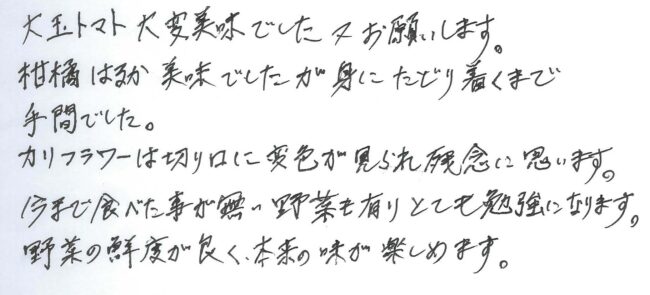 大玉トマト大変美味でした又お願いします。
柑橘はるか美味でしたが身にたどり着くまで
手間でした。
カリフラワーは切り口に変色が見られ残念に思います。
今まで食べた事が無い野菜も有りとても勉強になります。
野菜の鮮度が良く、本来の味が楽しめます。